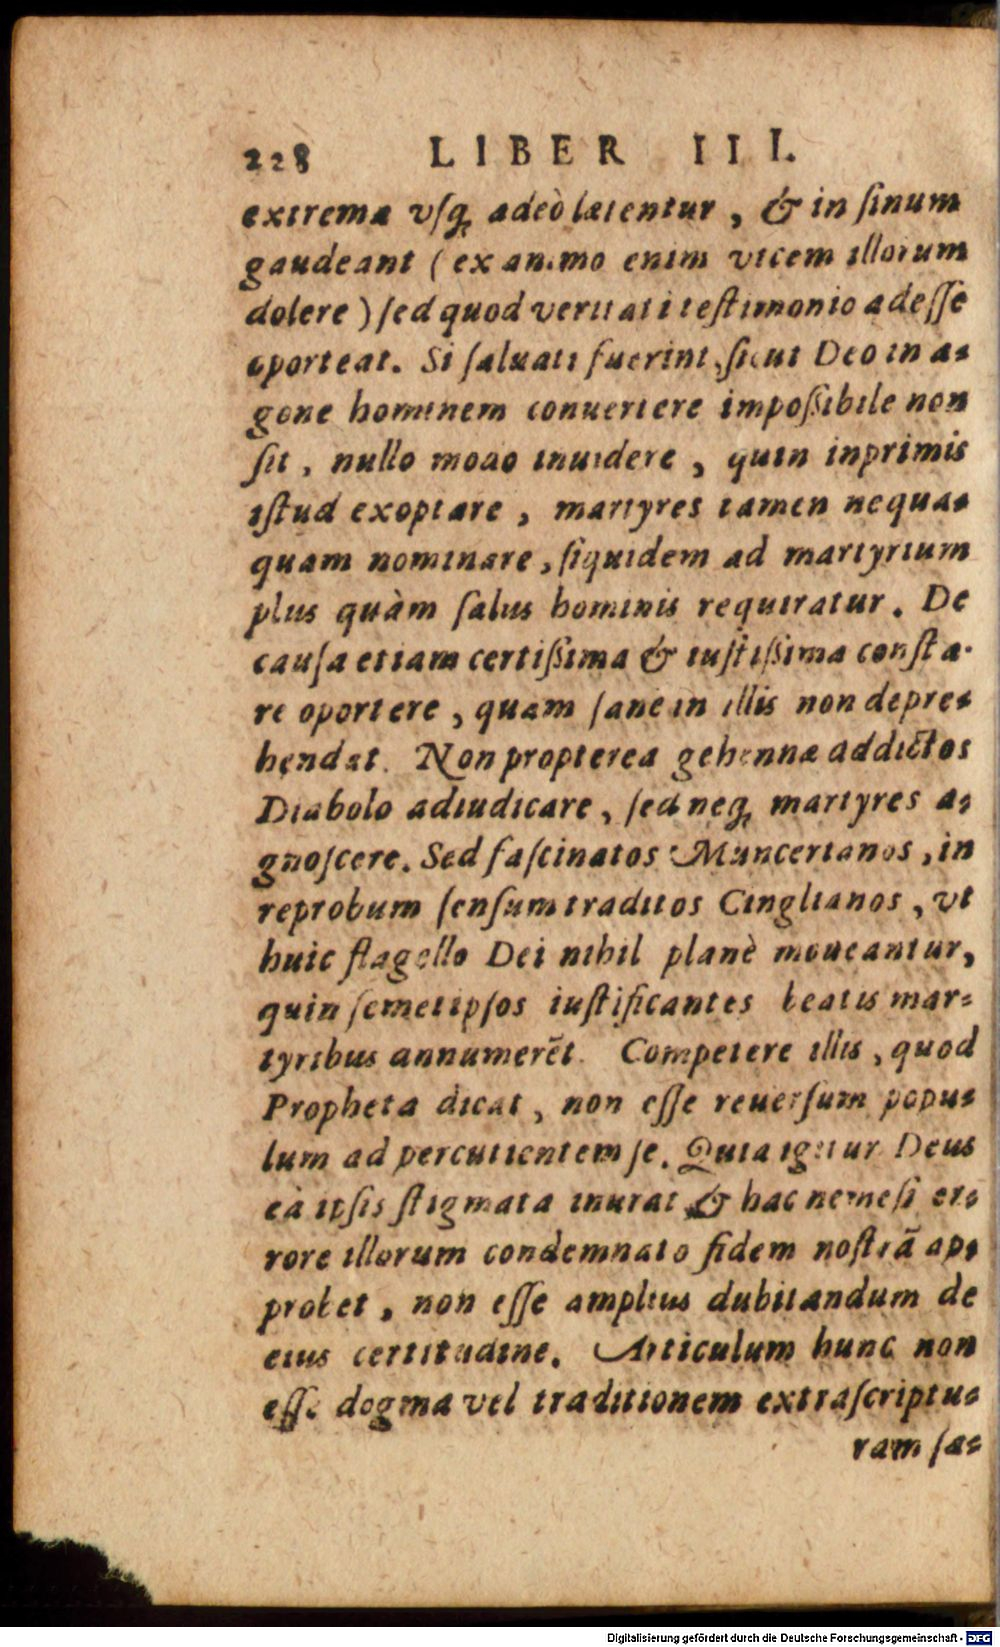 228 LIBER III.
extremæ vſq; adeò lætentur, & in ſinum
gaudeant (ex animo enim vicem illorum
dolere) ſed quod veritati teſtimonio adeſſe
oporteat. Si ſaluati fuerint, ſicut Deo in a-
gone hominem conuertere impoßibile non
ſit, nullo modo inuidere, quin inprimis
iſtud exoptare, martyres tamen nequa-
quam nominare, ſiquidem ad martyrium
plus quàm ſalus hominis requiratur. De
cauſa etiam certißima & iuſtißima conſta-
re oportere, quam ſane in illis non depre-
hendat. Non propterea gehennæ addictos
Diabolo adiudicare, ſed neq; martyres a-
gnoſcere. Sed faſcinatos Muncerianos, in
reprobum ſenſum traditos Cinglianos, vt
huic flagello Dei nihil planè moueantur,
quin ſemetipſos iuſtificantes beatis mar-
tyribus annumerẽt. Competere illis, quod
Propheta dicat, non eſſe reuerſum popu-
lum ad percutientem ſe. Quia igitur Deus
ea ipſis ſtigmata inurat & hac nemeſi er-
rore illorum condemnato fidem noſtrã ap-
probet, non eſſe amplius dubitandum de
eius certitudine. Articulum hunc non
eſſe dogma vel traditionem extraſcriptu-
ram ſa-
Digitalisierung gefördert durch die Deutsche Forschungsgemeinschaft - DFG